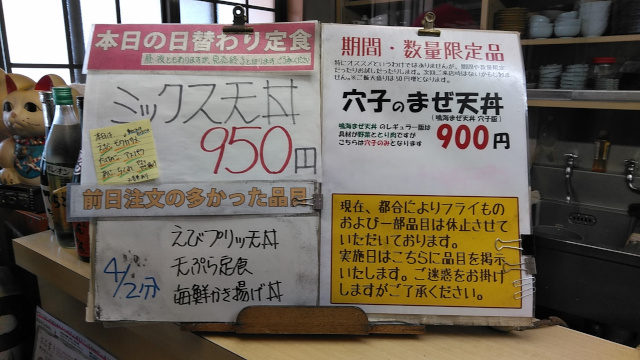 本日の日替わり定食
ミックス天丼
950円
前日注文の多かった品目
4/2分
えびプリッ天丼
天ぷら定食
海鮮かき揚げ丼
期間・数量限定品
穴子のまぜ天丼
(鳴海まぜ天丼 穴子版)
鳴海まぜ天丼 のレギュラー版は
具材が野菜ととり肉ですが
こちらは穴子のみとなります
900円
現在、都合によりフライもの
および一部品目は休止させて
いただいております。
実施日はこちらに品目を掲示
いたします。ご迷惑をお掛け
しますがご了承ください。